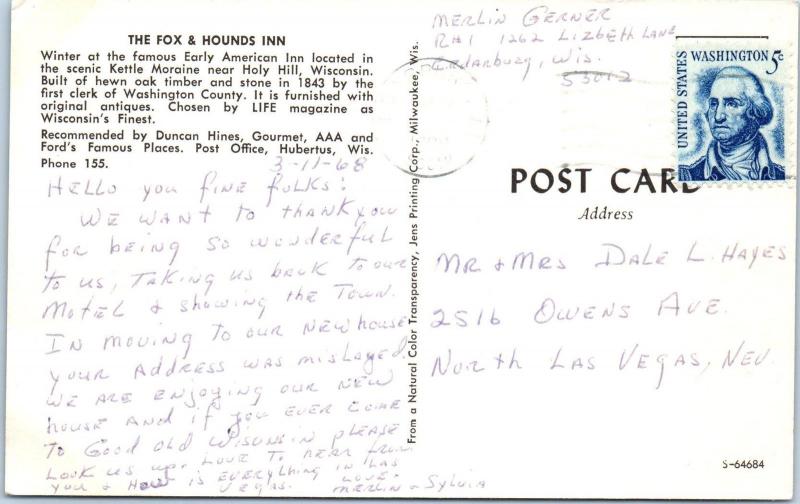 THE FOX & HOUNDS INN
Winter at the famous Early American Inn located in
the scenic Kettle Moraine near Holy Hill, Wisconsin.
Built of hewn oak timber and stone in 1843 by the
first clerk of Washington County. It is furnished with
original antiques. Chosen by LIFE magazine as
Wisconsin's Finest.
Recommended by Duncan Hines, Gourmet, AAA and
Ford's Famous Places. Post Office, Hubertus, Wis.
Phone 155.
3-11-68
HELLO YOU FINE FOLKS!
WE WANT TO THANK YOU
FOR BEING SO WONDERFUL
TO US, TAKING US BACK TO OUR
MOTEL & SHOWING THE TOWN.
IN MOVING TO OUR NEW HOUSE
YOUR ADDRESS WAS MISLAYED.
WE ARE ENJOYING OUR NEW
HOUSE AND IF YOU EVER COME
TO GOOD OLD WISCONSIN PLEASE
LOOK US UP. LOVE TO HEAR FROM
YOU & HOW IS EVERYTHING IN LAS
VEGAS. LOVE:
MERLIN & SYLVIA
From a Natural Color Transparency, Jens Printing Corp., Milwaukee, Wis.
MERLIN GERNER
RH1 1262 LIZBETH LANE
Cedarburg, Wis.
53012
UNITED STATES
WASHINGTON 5c
POST CARD
Address
MR & MRS DALE L. HAYES
2516 OWENS AVE.
NORTH LAS VEGAS, NEV.
S-64684